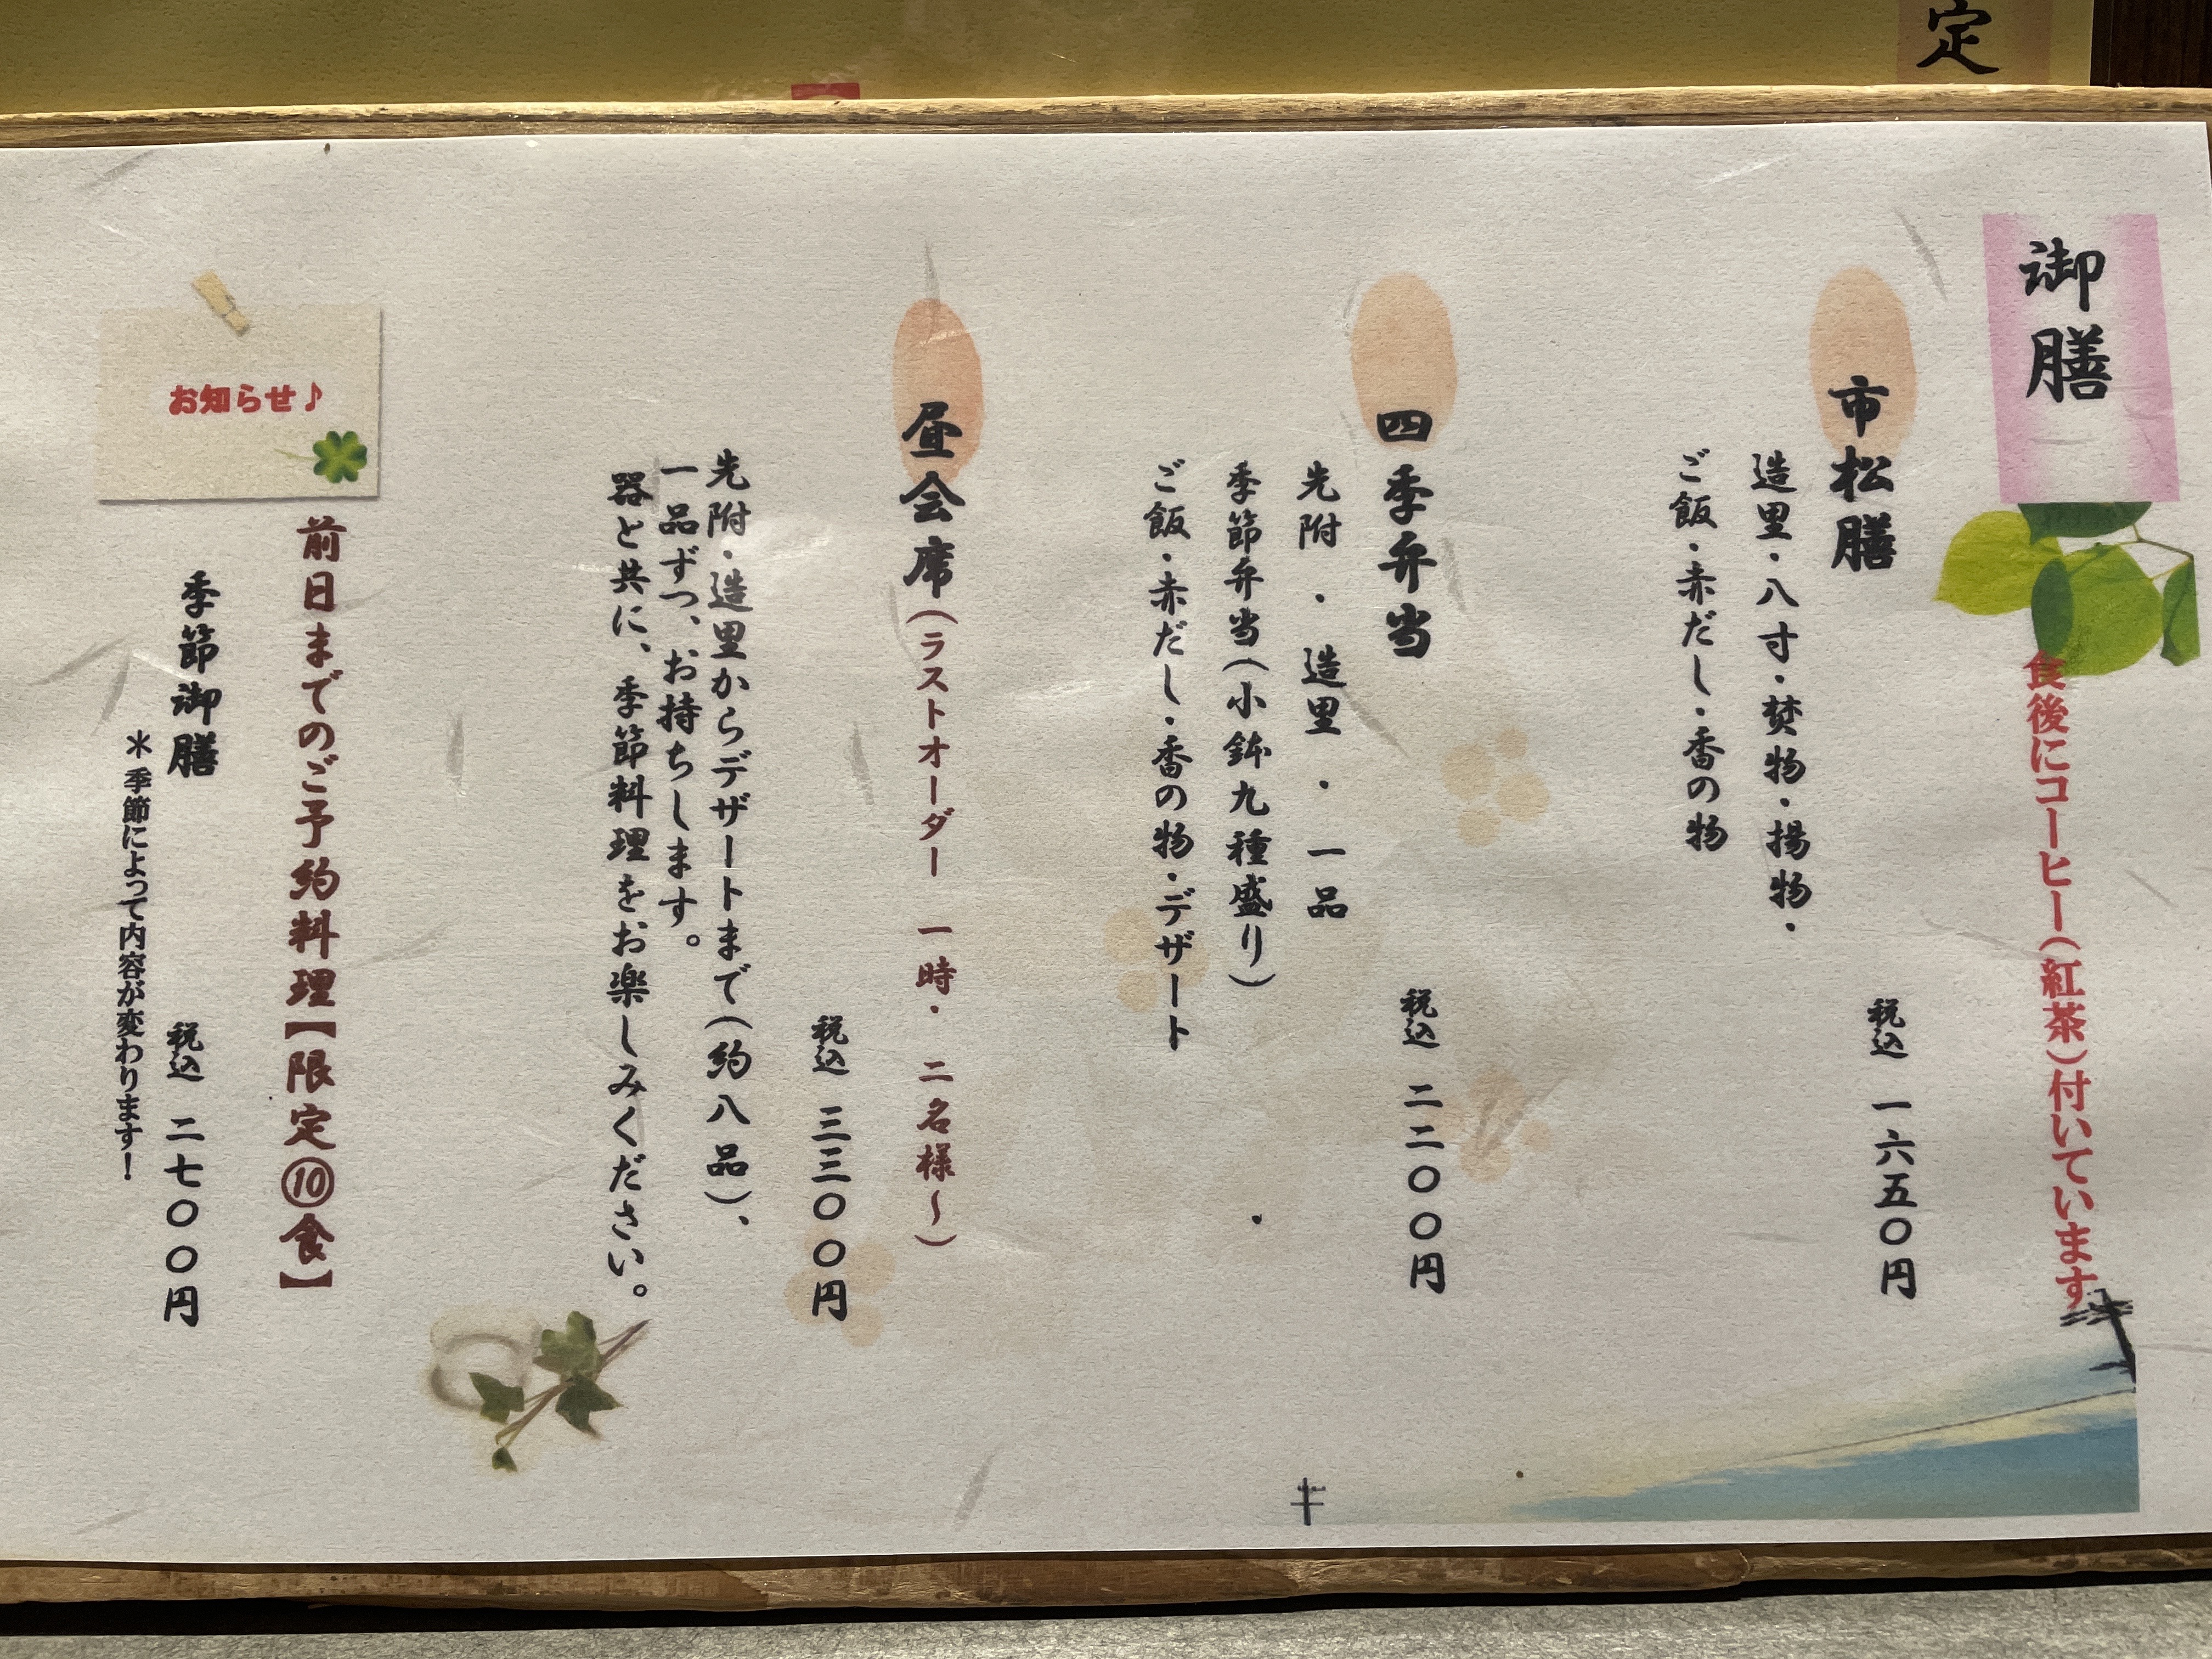 定
御膳
食後にコーヒー(紅茶)付いています
市松膳
造里・八寸・焚物・揚物・
ご飯・赤だし・香の物
税込 一六五〇円
四季弁当
先附・造里・一品
季節弁当(小鉢九種盛り)
ご飯・赤だし・香の物・デザート
税込 二二〇〇円
昼会席(ラストオーダー 一時・二名様～)
先附・造里からデザートまで(約八品)、
一品ずつ、お持ちします。
器と共に、季節料理をお楽しみください。
税込 三三〇〇円
お知らせ♪
前日までのご予約料理【限定⑩食】
季節御膳
税込 二七〇〇円
＊季節によって内容が変わります！